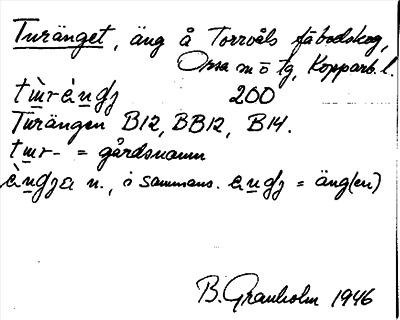 Turänget, äng å Torrvåls fäbodskog,
Orsa m o tg, Kopparb. l.
200
Turängen B12, BB12, B14.
tɯr- = gårdsnamn
n., i sammans. = äng(en)
B. Granholm 1946